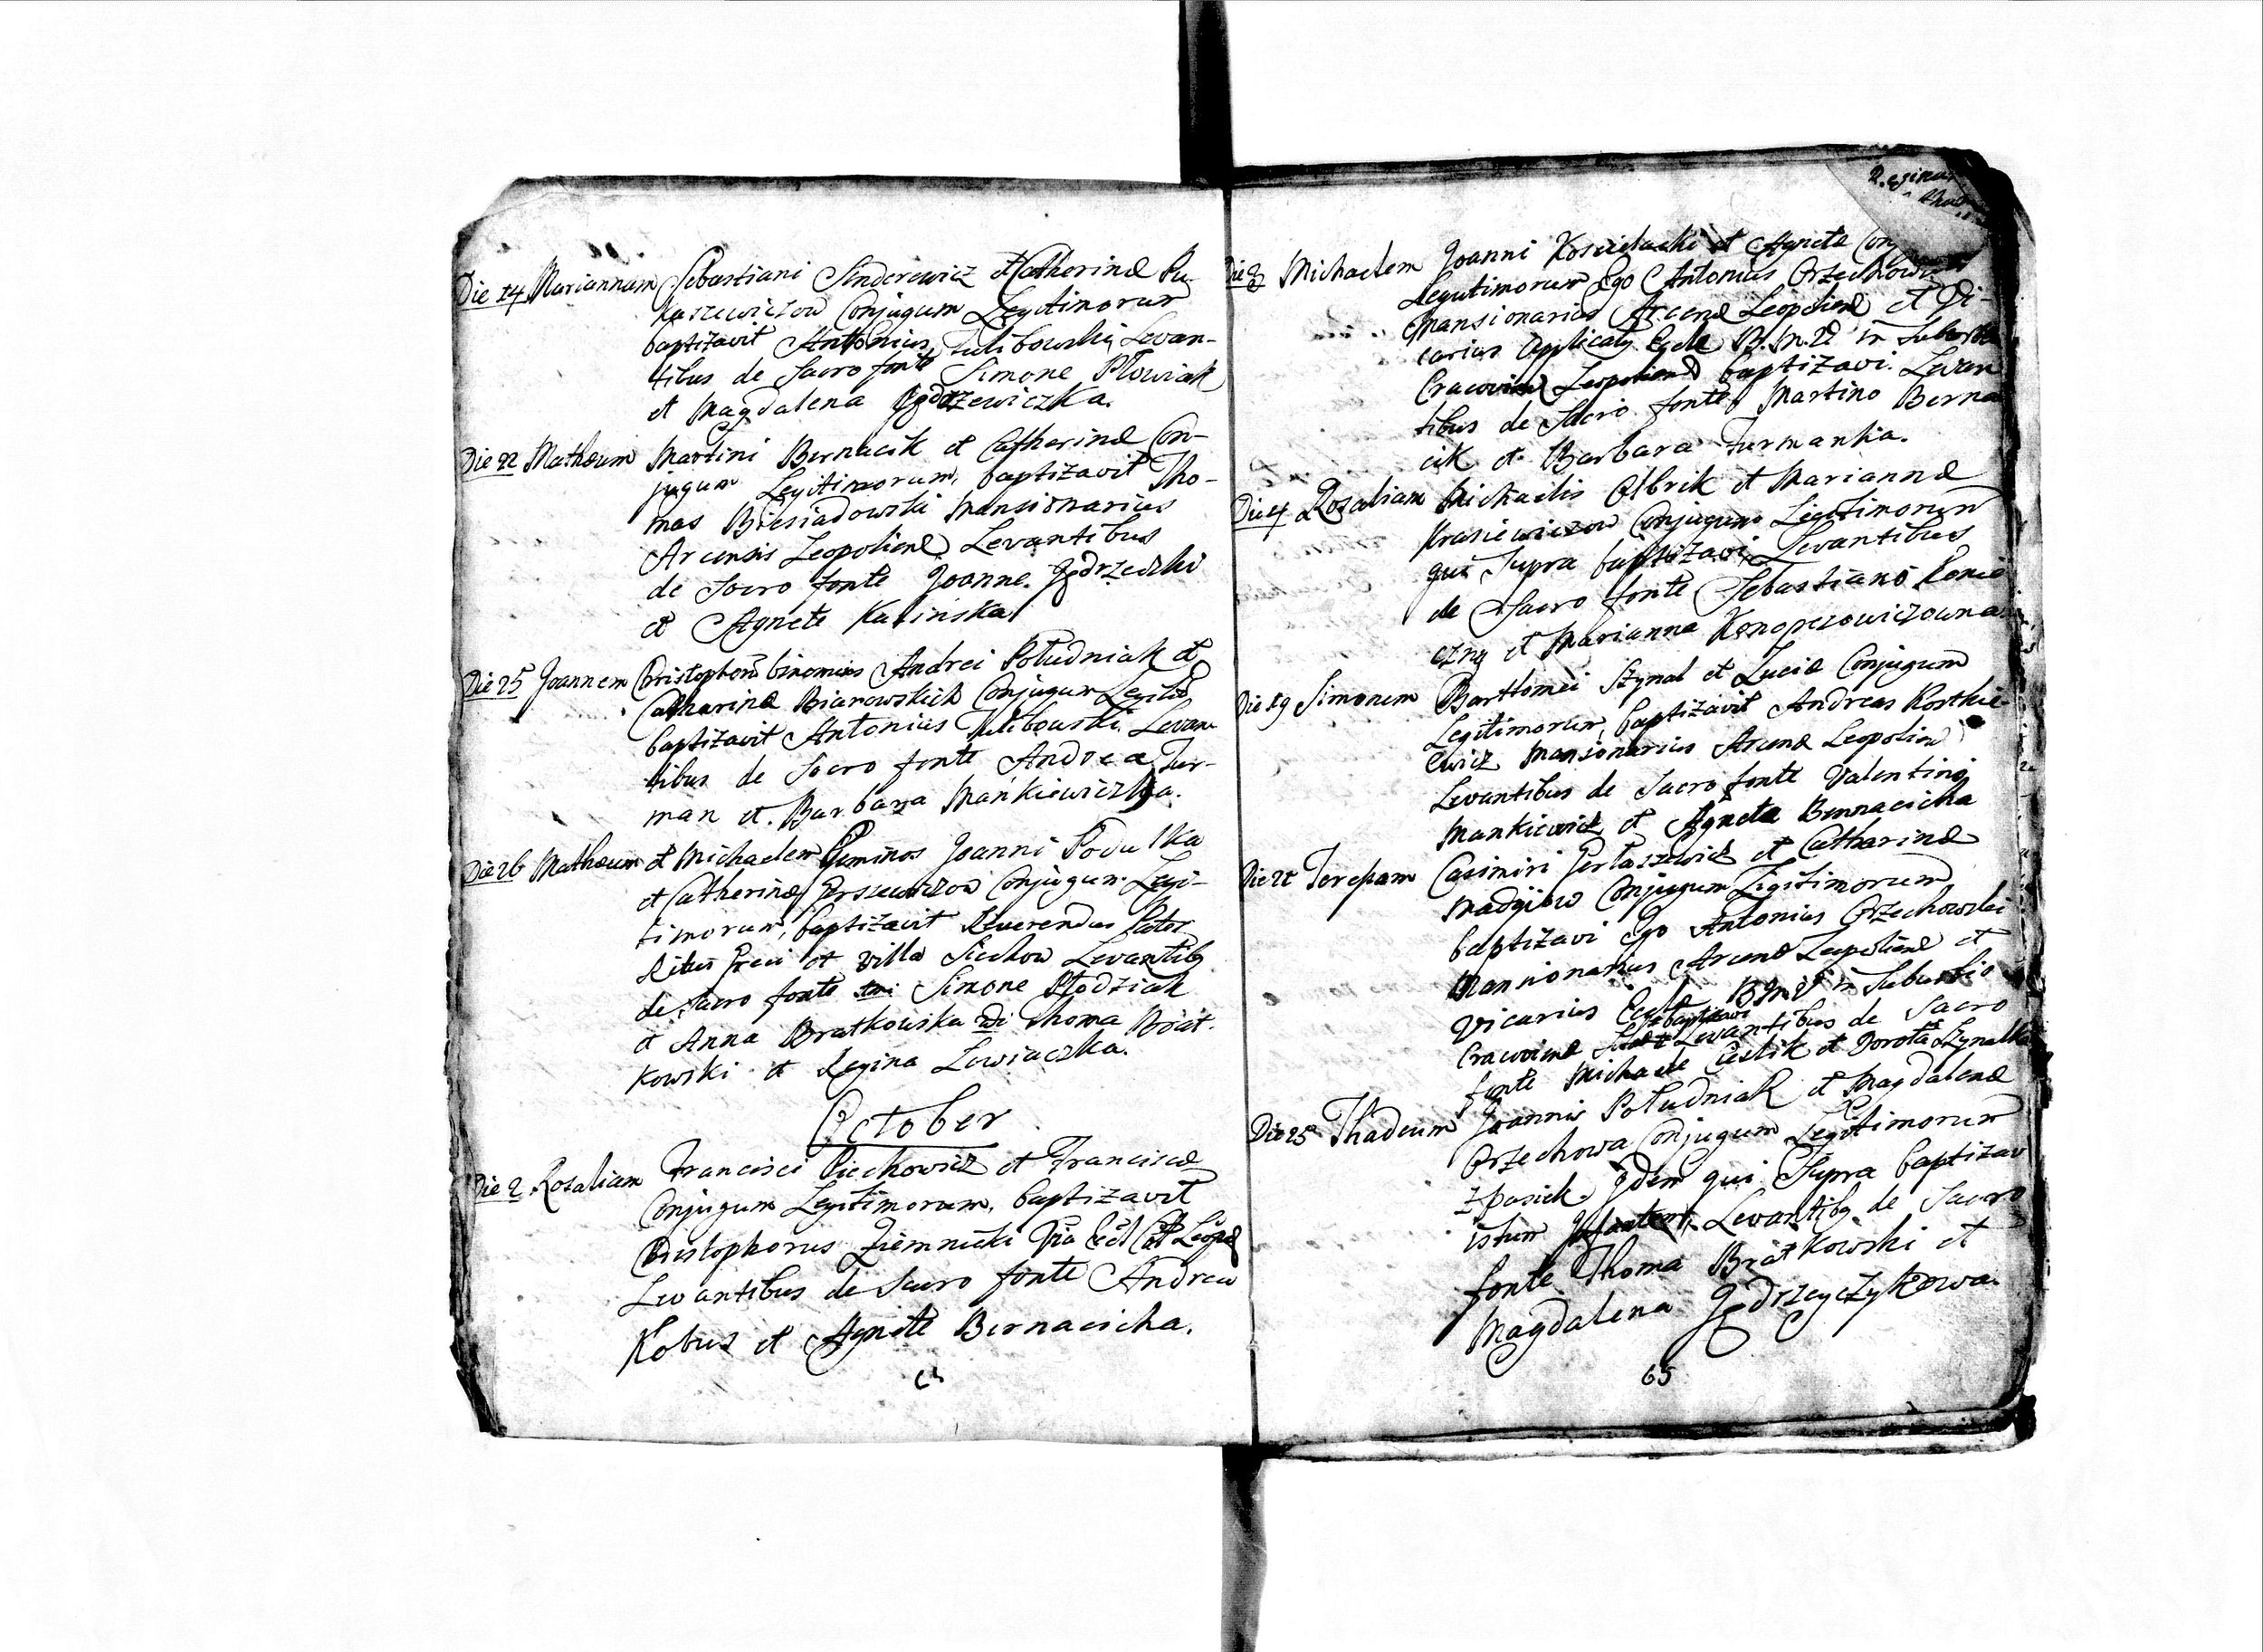 Die 14 Mariannam Sebastiani Senderewicz et Catherinæ Lu-
kaszewiczow Conjugum Legitimorum
baptizavit Antonius Kulibowski, Levan-
tibus de Sacro fonte Simone Plowiak
et Magdalena Jędrzewiczka.
Die 22 Mathæum Martini Bernacik et Catherinæ Con-
jugum Legitimorum, baptizavit Tho-
mas Biesiadowski Mansionarius
Arcensis Leopoliensis Levantibus
de Sacro fonte Joanne Jędrzewski
et Agnete Kalinska
Die 25 Joannem Christophorum binomius Andrei Południak et
Catharinæ Biarowskich Conjugum
baptizavit Antonius Kulibowski. Levan-
tibus de Sacro fonte Andrea Fur-
man et Barbara Mańkiewiczka.
Die 26 Mathæum et Michaelem Geminos Joanni Podulka
et Catherinæ Conjugum Legi-
timorum, baptizavit Reverendus Pater
Ritus Græci et Villa Siechow Levantibq
de Sacro fonte Simone Płodziak
et Anna Bratkowska 2di Thoma Brat-
kowski et Regina Zowiaczka.
October
Die 2 Rosaliam Francisci Piechowicz et Franciscæ
Conjugum Legitimorum, baptizavit
Cristophorus Ziemnicki
Levantibus de Sacro fonte Andrea
Kobus et Agnete Bernacicha.
Die 3 Michaelem Joanni Koscielacki et Agnete Conj
Legitimorum Ego Antonius Orzechowski
Mansionarius Arcenæ Leopolienæ et Vi-
carius B.M.V in Suburbio
Cracovien Leopolienæ baptizavi. Levan
tibus de Sacro fonte Martino Berna
cik et Barbara Furmanka.
Die 4 Rozaliam Michaelis Olbrik et Mariannæ
Krasiewiczow Conjugum Legitimorum
qui Supra baptizavi, Levantibus
de Sacro fonte Sebastiano Konie
czny et Marianna Konopczowiczowna
Die 19 Simonem Bartłomei Szynal et Luciæ Conjugum
Legitimorum, baptizavit Andreas Kostkie-
wicz Mansionarius Arcenæ Leopolien
Levantibus de Sacro fonte Valentino
Mankiewicz et Agneta Bernacicha
Die 21 Teresam Casimiri Gerłaszewicz et Catharinæ
Conjugum Legitimorum
baptizavi Ego Antonius Orzechowski
Mansionarius Arcenæ Leopolienæ et
Vicarius Eccl BMV in Suburbio
Cracovienæ Levantibus de Sacro
fonte Michaele Cieslik et Dorota Szynalka
Die 25 Thadeum Joannis Południak et Magdalenæ
Orzechowa Conjugum Legitimorum
z pasiek Idem qui Supra baptizav
istum Infantem, Levantibq de Sacro
fonte Thoma Bratkowski et
Magdalena Jędrzeyczykowa.
65